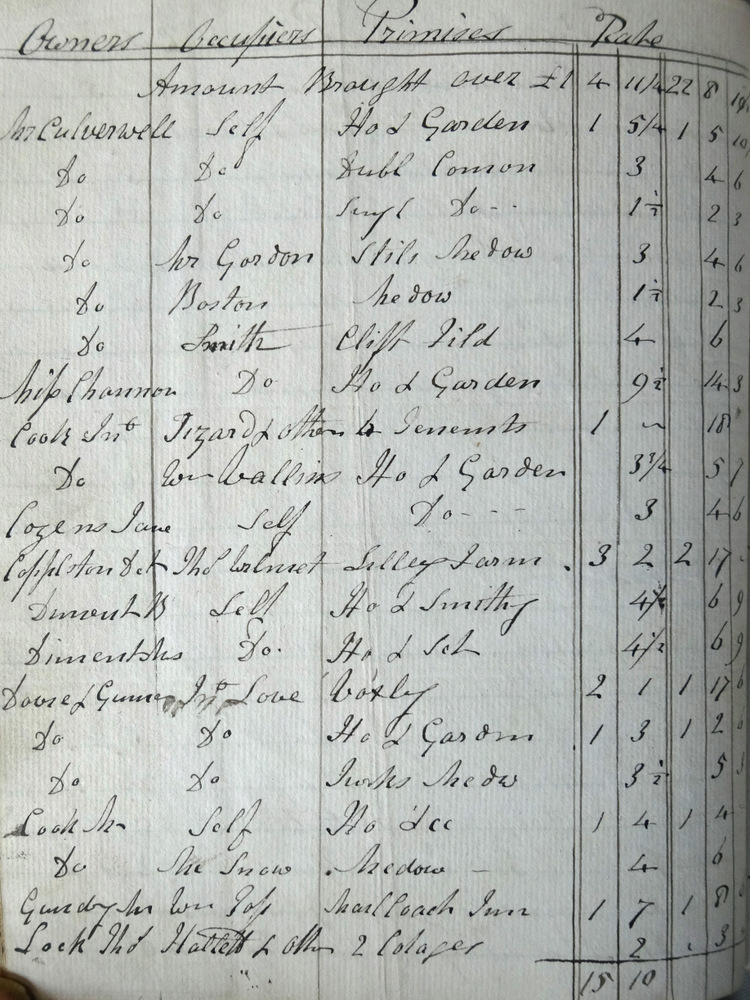 Owners Occupiers Primises Rate
Amount Brought over £1 4 11/4 22 8
Mr Culverwell Self Ho & Garden 1 5/4 1 5
Do Do Dubl Comon 3 4 6
Do Do Singl Do - - 1½ 2 3
Do Mr Gordon Stils Medow 3 4 6
Do Boston Medow 1½ 2 3
Do Smith Cliff Fild 4 6
Miss Channon Do Ho & Garden 9½ 14 3
Cook Jno Tizard & others 4 Tenements 1 ~ 18
Do Wm Wallins Ho & Garden 3¾ 5 7
Cozens Jane Self Do - - - 3 4 6
Copplston Thos Lilley Farm 3 2 2 17
Self Ho & Smithy 4½ 6 9
Do Ho & 4½ 6 9
Jno Love 2 1 1 17 6
Do Do Ho & Gardn 1 3 1 2
Do Do Medw 3½ 5
Cook Mr Self Ho &cc 1 4 1 4
Do Mr Snow Medow - 4 6
Gundy Mr Wm Foss Mail Coach Inn 1 7 1 8
Lock Thos Hallett & othrs 2 Cotages 2 3
15 10